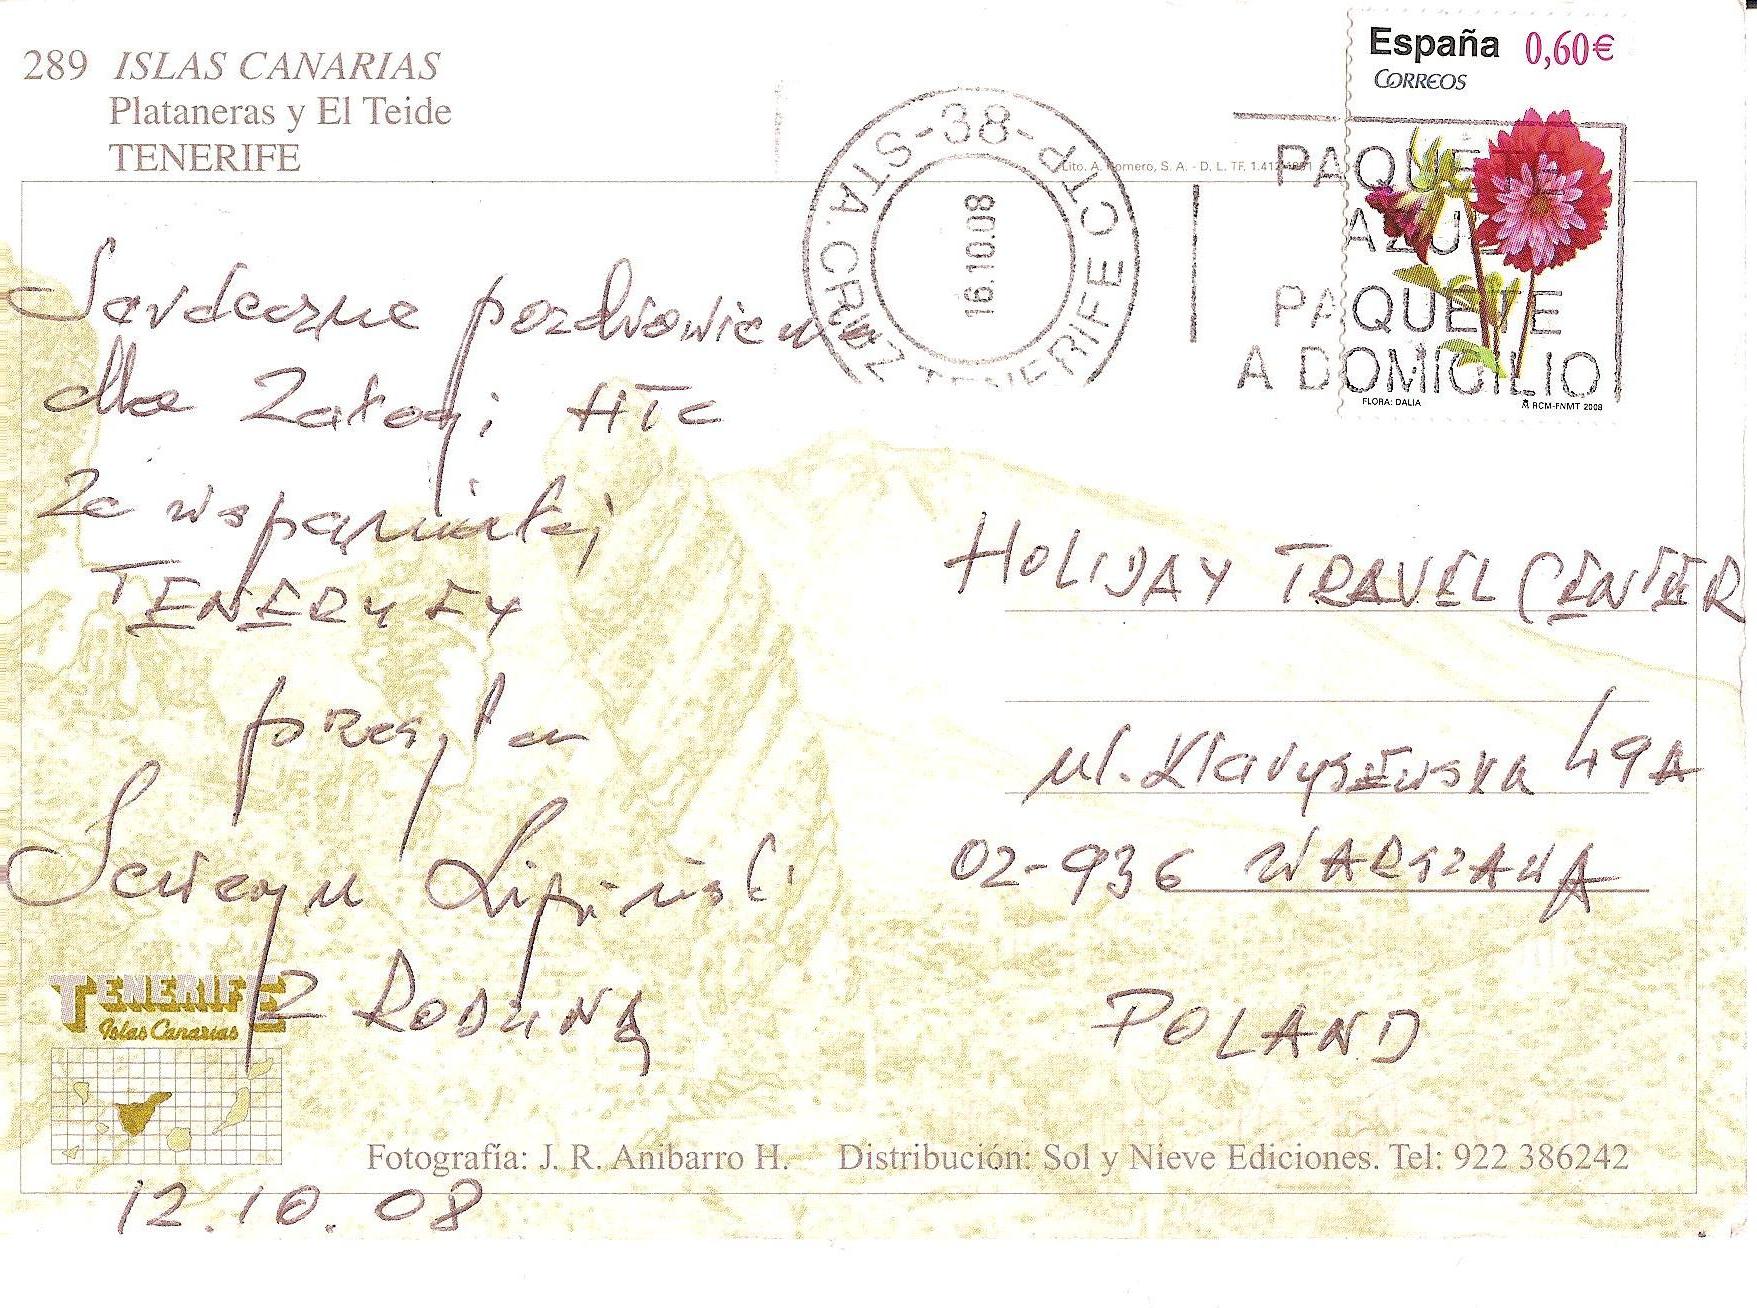 289 ISLAS CANARIAS
Plataneras y El Teide
TENERIFE
España 0,60€
CORREOS
38 - CTP - STA. CRUZ TENERIFE
16.10.08
PAQUETE
AZUL
PAQUETE
A DOMICILIO
FLORA: DALIA
RCM-FNMT 2008
Lito. A. Romero, S. A. - D. L. TF. 1.412
Serdeczne pozdrowienia
dla Załogi HTC
Ze wspaniałej
TENERYFY
przesyła
Seweryn Lipiński
Z RODZINĄ
12.10.08
HOLIDAY TRAVEL CENTER
ul. Klaryszewska 49A
02-936 WARSZAWA
POLAND
TENERIFE
Islas Canarias
Fotografía: J. R. Anibarro H. Distribución: Sol y Nieve Ediciones. Tel: 922 386242